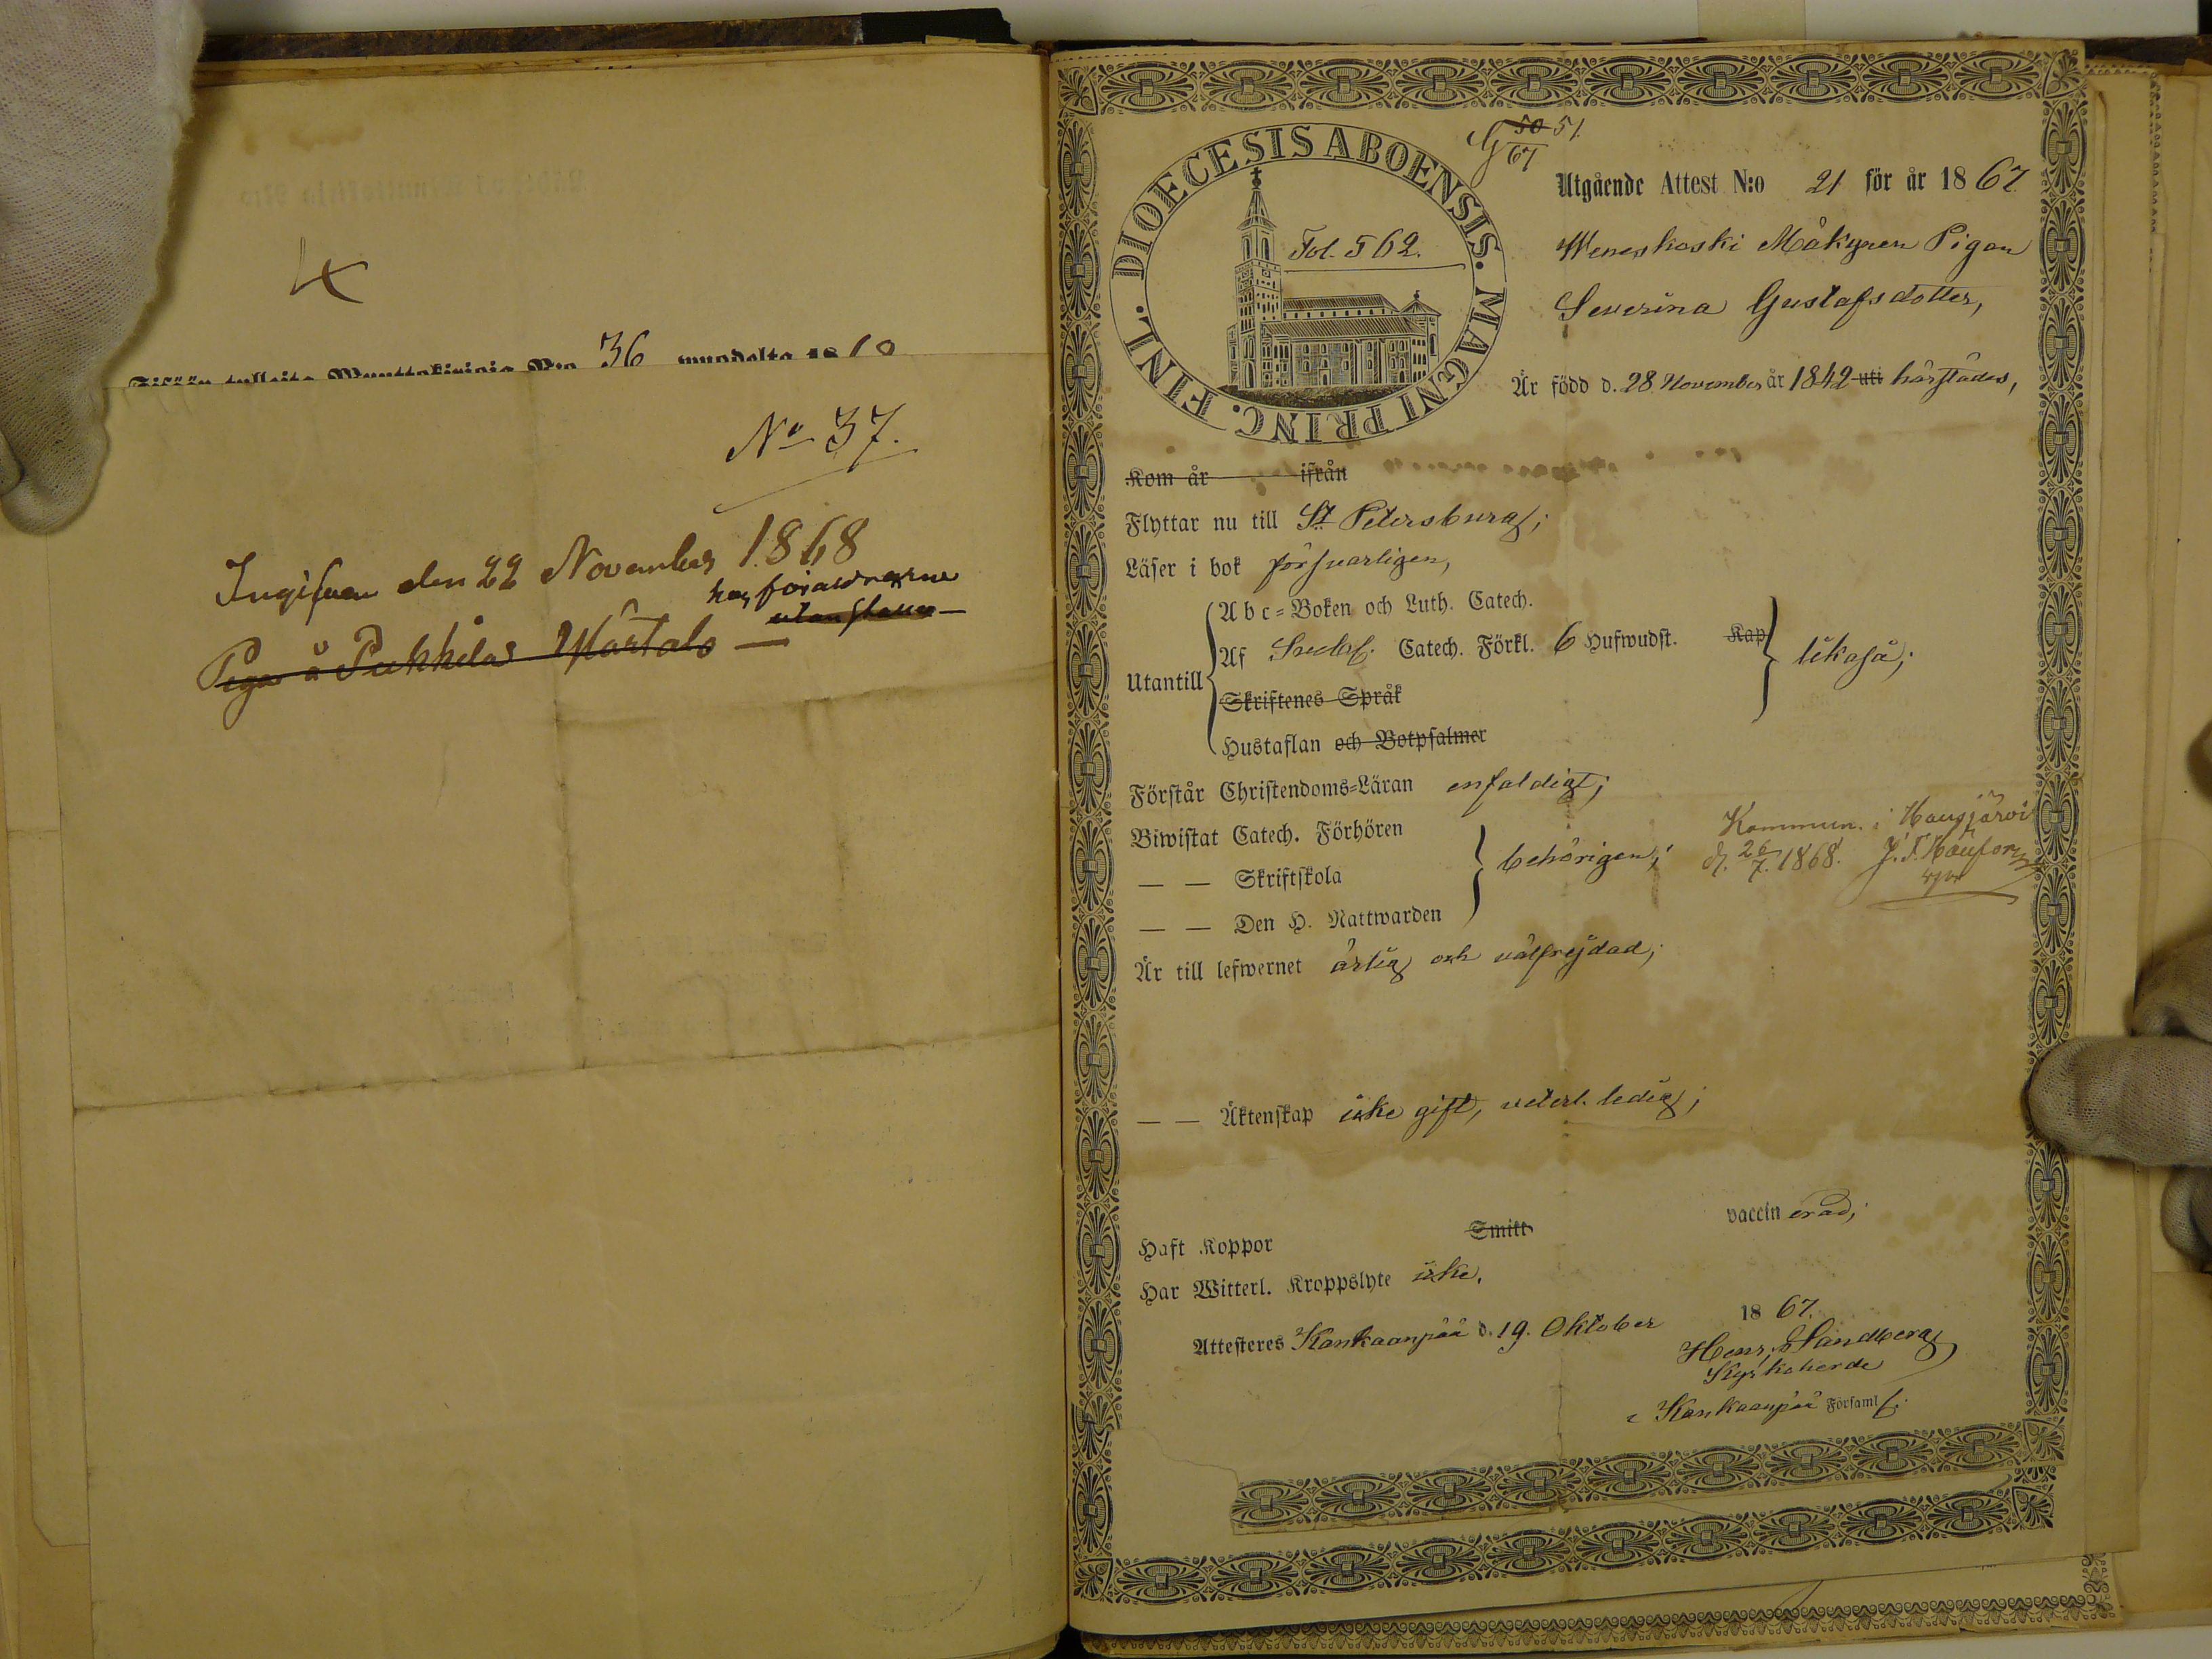 36
No 37.
Ingifven den 22 November 1868
hos föräldrarne
Piga å Pukkilas Wartalo
DIOECESIS ABOENSIS. MAGNI PRINC. FINL.
Fol. 562.
50 51.
67
Utgående Attest N:o 21 för år 1867
Weneskoski Mäkynen Pigan
Severina Gustafsdotter,
Är född d. 28 November år 1842 uti härstädes,
Kom år ifrån
Flyttar nu till St Petersburg;
Läser i bok försvarligen,
Utantill
Abc-Boken och Luth. Catech.
Af Svebil. Catech. Förkl. 6 Hufwudst. Kap
likaså;
Skriftenes Språk
Hustaflan och Botpsalmer
Förstår Christendoms-Läran enfaldigt;
Biwistat Catech. Förhören
— — Skriftskola
behörigen;
— — Den H. Nattwarden
Kommun. i Hausjärvi
d. 26/7. 1868.
Är till lefwernet ärlig och välfrejdad;
— — Äktenskap icke gift, veterl. ledig;
Haft Koppor Smitt vaccinerad;
Har Witterl. Kroppslyte icke.
Attesteres Kankaanpää d. 19. Oktober 1867.
Henr. Sandberg
Kyrkoherde
i Kankaanpää Församl.